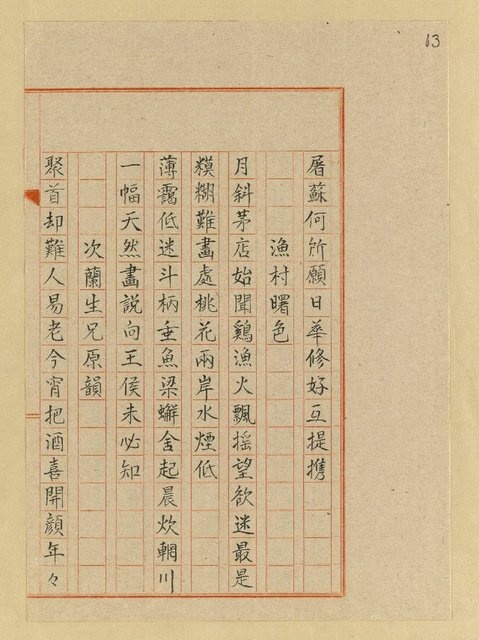 13
屠蘇何所願日華修好互提携
漁村曙色
月斜茅店始聞鷄漁火飄搖望欲迷最是
糢糊難畫處桃花兩岸水煙低
薄靄低迷斗柄垂魚梁蠏舍起晨炊輞川
一幅天然畫説向王侯未必知
次蘭生兄原韻
聚首却難人易老今宵把酒喜開顔年々